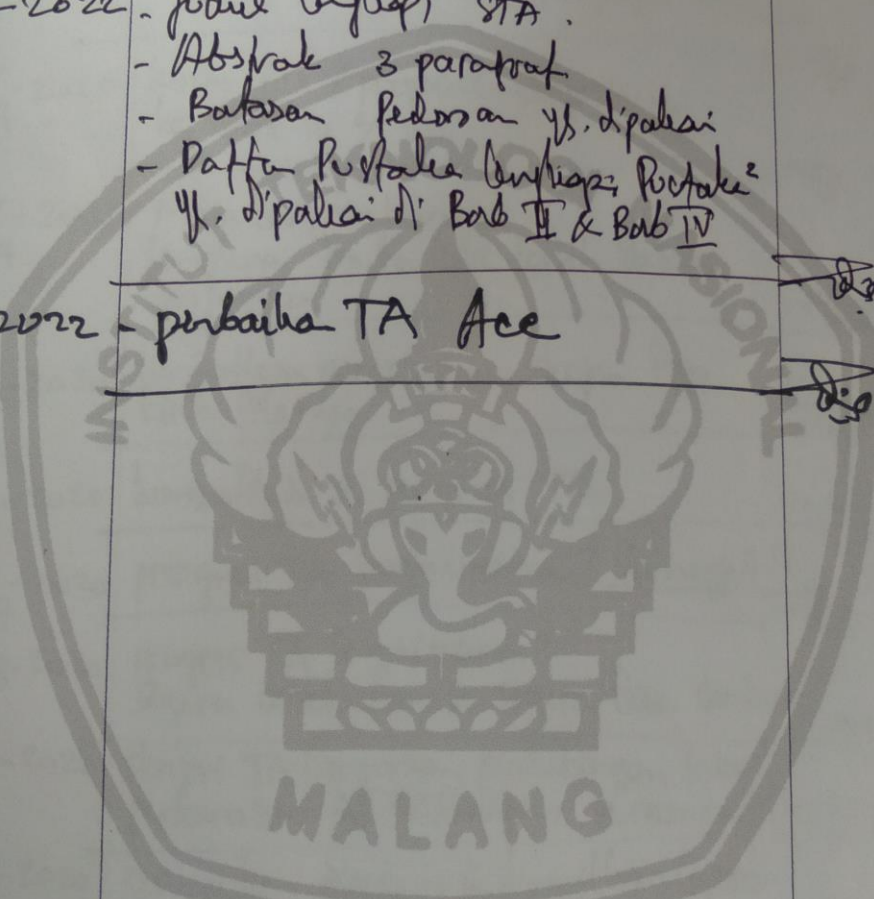 -2022 - Judul lengkapi STA.
- Abstrak 3 paragraf
- Batasan Pedoman yg. dipakai
- Daftar Pustaka lengkapi Pustaka²
yg. dipakai di Bab II & Bab IV
2022 - perbaika TA Acc
INSTITUT TEKNOLOGI NASIONAL
ITN
MALANG